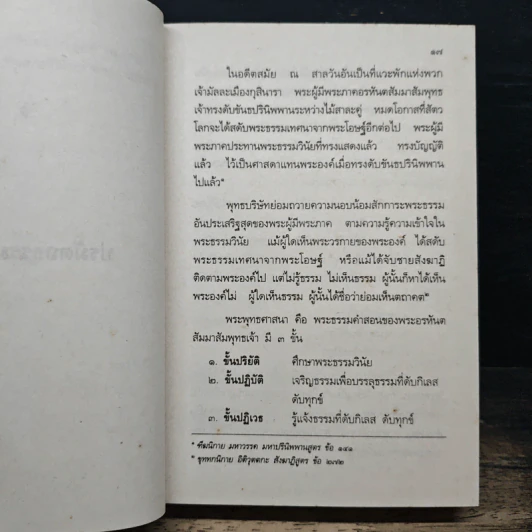 ๑๗
ในอดีตสมัย ณ สาลวันอันเป็นที่แวะพักแห่งพวก
เจ้ามัลละเมืองกุสินารา พระผู้มีพระภาคอรหันตสัมมาสัมพุทธ
เจ้าทรงดับขันธปรินิพพานระหว่างไม้สาละคู่ หมดโอกาสที่สัตว
โลกจะได้สดับพระธรรมเทศนาจากพระโอษฐ์อีกต่อไป พระผู้มี
พระภาคประทานพระธรรมวินัยที่ทรงแสดงแล้ว ทรงบัญญัติ
แล้ว ไว้เป็นศาสดาแทนพระองค์เมื่อทรงดับขันธปรินิพพาน
ไปแล้ว*
พุทธบริษัทย่อมถวายความนอบน้อมสักการะพระธรรม
อันประเสริฐสุดของพระผู้มีพระภาค ตามความรู้ความเข้าใจใน
พระธรรมวินัย แม้ผู้ใดเห็นพระวรกายของพระองค์ ได้สดับ
พระธรรมเทศนาจากพระโอษฐ์ หรือแม้ได้จับชายสังฆาฏิ
ติดตามพระองค์ไป แต่ไม่รู้ธรรม ไม่เห็นธรรม ผู้นั้นก็หาได้เห็น
พระองค์ไม่ ผู้ใดเห็นธรรม ผู้นั้นได้ชื่อว่าย่อมเห็นตถาคต*
พระพุทธศาสนา คือ พระธรรมคำสอนของพระอรหันต
สัมมาสัมพุทธเจ้า มี ๓ ชั้น
๑. ขั้นปริยัติ ศึกษาพระธรรมวินัย
๒. ขั้นปฏิบัติ เจริญธรรมเพื่อบรรลุธรรมที่ดับกิเลส
ดับทุกข์
๓. ขั้นปฏิเวธ รู้แจ้งธรรมที่ดับกิเลส ดับทุกข์
* ทีฆนิกาย มหาวรรค มหาปรินิพพานสูตร ข้อ ๑๔๑
* ขุททกนิกาย อิติวุตตกะ สังฆาฏิสูตร ข้อ ๒๗๒